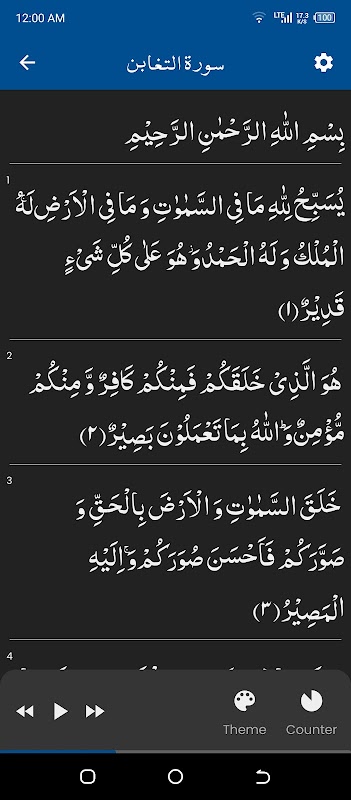 12:00 AM LTE 17.3 K/S 100
سورة التغابن
بِسْمِ اللهِ الرَّحْمٰنِ الرَّحِيْمِ
1
يُسَبِّحُ لِلّٰهِ مَا فِى السَّمٰوٰتِ وَ مَا فِى الْاَرْضِ لَهُ
الْمُلْكُ وَ لَهُ الْحَمْدُ وَ هُوَ عَلٰى كُلِّ شَىْءٍ
قَدِيْرٌ ﴿١﴾
2
هُوَ الَّذِىْ خَلَقَكُمْ فَمِنْكُمْ كَافِرٌ وَّ مِنْكُمْ
مُّؤْمِنٌ وَ اللهُ بِمَا تَعْمَلُوْنَ بَصِيْرٌ ﴿٢﴾
3
خَلَقَ السَّمٰوٰتِ وَ الْاَرْضَ بِالْحَقِّ وَ
صَوَّرَكُمْ فَاَحْسَنَ صُوَرَكُمْ وَ اِلَيْهِ
الْمَصِيْرُ ﴿٣﴾
4
Theme Counter